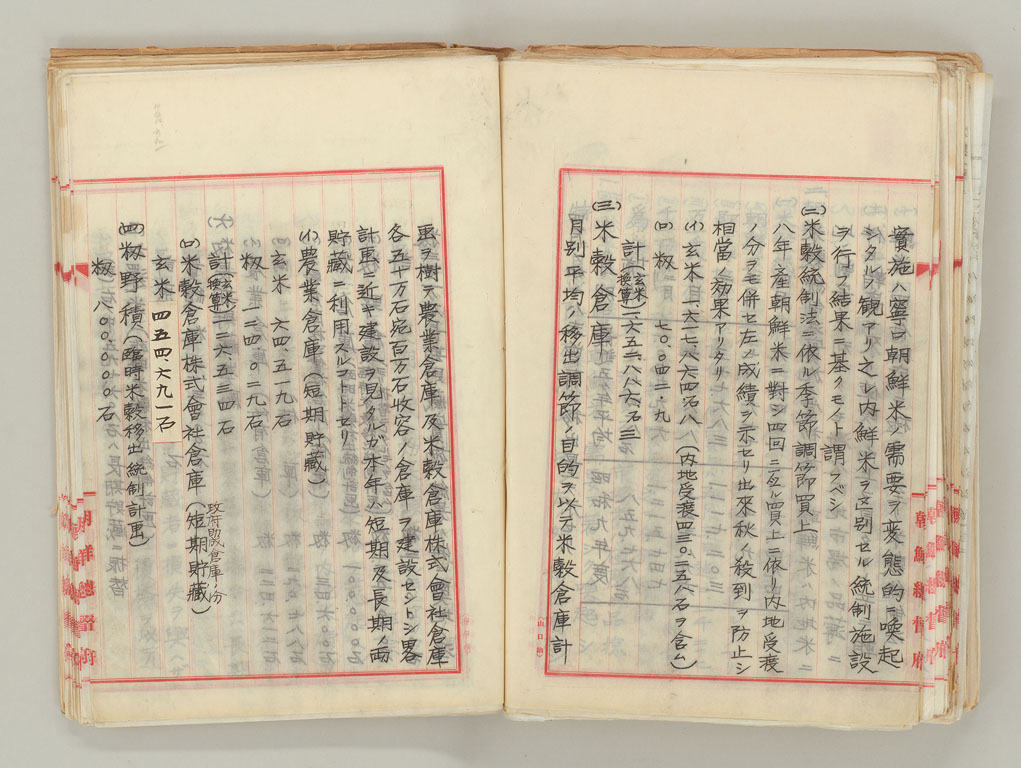 實施ハ寧ロ朝鮮米ノ需要ヲ変態的ニ喚起
シタルノ観アリ之レ内鮮米ヲ区別セル統制施設
ヲ行フ結果ニ基クモノト謂フベシ
(二)米穀統制法ニ依ル季節調節買上
八年産朝鮮米ニ對シ四回ニ亙ル買上ニ依リ内地受渡
ノ分ヲモ併セ左ノ成績ヲ示セリ出來秋ノ殺到ヲ防止シ
相當ノ効果アリタリ
(イ)玄米 一、六一七、八六四石八(内地受渡四三〇、二五八石ヲ含ム)
(ロ)籾 七〇、〇四二、九
計(玄米換算)一、六五二、八八六石三
(三)米穀倉庫
月別平均ノ移出調節ノ目的ヲ以テ米穀倉庫計
画ヲ樹テ農業倉庫及米穀倉庫株式會社倉庫
各五十万石宛百万石收容ノ倉庫ヲ建設セントシ畧
計画ニ近キ建設ヲ見タルガ本年ハ短期及長期ノ両
貯藏ニ利用スルコトトセリ
(イ)農業倉庫(短期貯藏)
玄米 六四、五一九石
籾 一二四、〇二九石
計(玄米換算)一二六、五三四石
(ロ)米穀倉庫株式會社倉庫 政府助成倉庫ノ分(短期貯藏)
玄米 四五四六九一石
(四)籾野積(臨時米穀移出統制計画)
籾 一、八〇〇、〇〇〇石
朝鮮總督府
朝鮮總督府